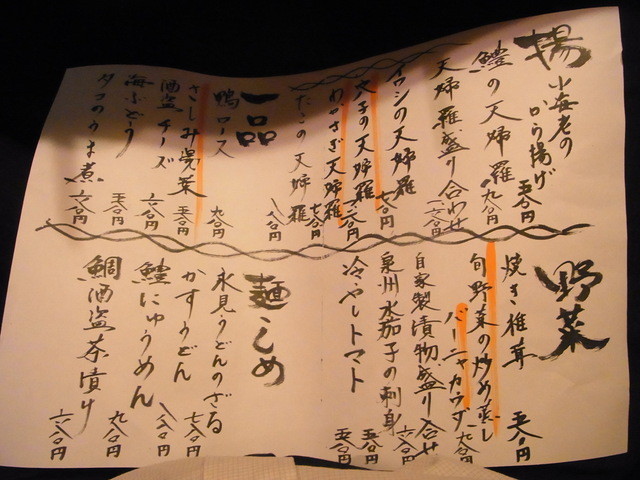 揚
小海老のから揚げ 五八〇円
鱧の天婦羅 九八〇円
天婦羅盛り合わせ 一二八〇円
イワシの天婦羅 七八〇円
穴子の天婦羅
わかさぎ天婦羅 七八〇円
たこの天婦羅 八八〇円
一品
鴨ロース 九八〇円
さしみ湯葉 五八〇円
酒盗チーズ 六八〇円
海ぶどう 五八〇円
タコのうま煮 六八〇円
野菜
焼き椎茸 五八〇円
旬野菜の炒め蒸し
バーニャカウダ 九八〇円
自家製漬物盛り合せ 六八〇円
泉州水茄子の刺身 五八〇円
冷やしトマト 五八〇円
麺・しめ
氷見うどんのざる 七八〇円
かすうどん 八八〇円
鱧にゅうめん 九八〇円
鯛酒盗茶漬け 六八〇円